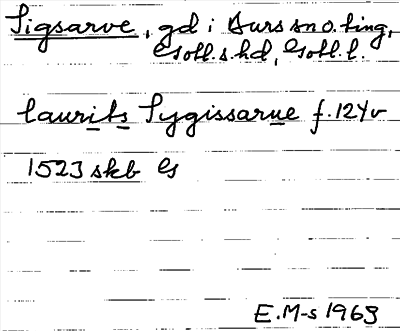 Sigsarve, gd i Burs sn o. ting,
Gotl.s.hd, Gotl.l.
laurits Sygissarue f. 124v
1523 skb Gs
E.M-s 1963